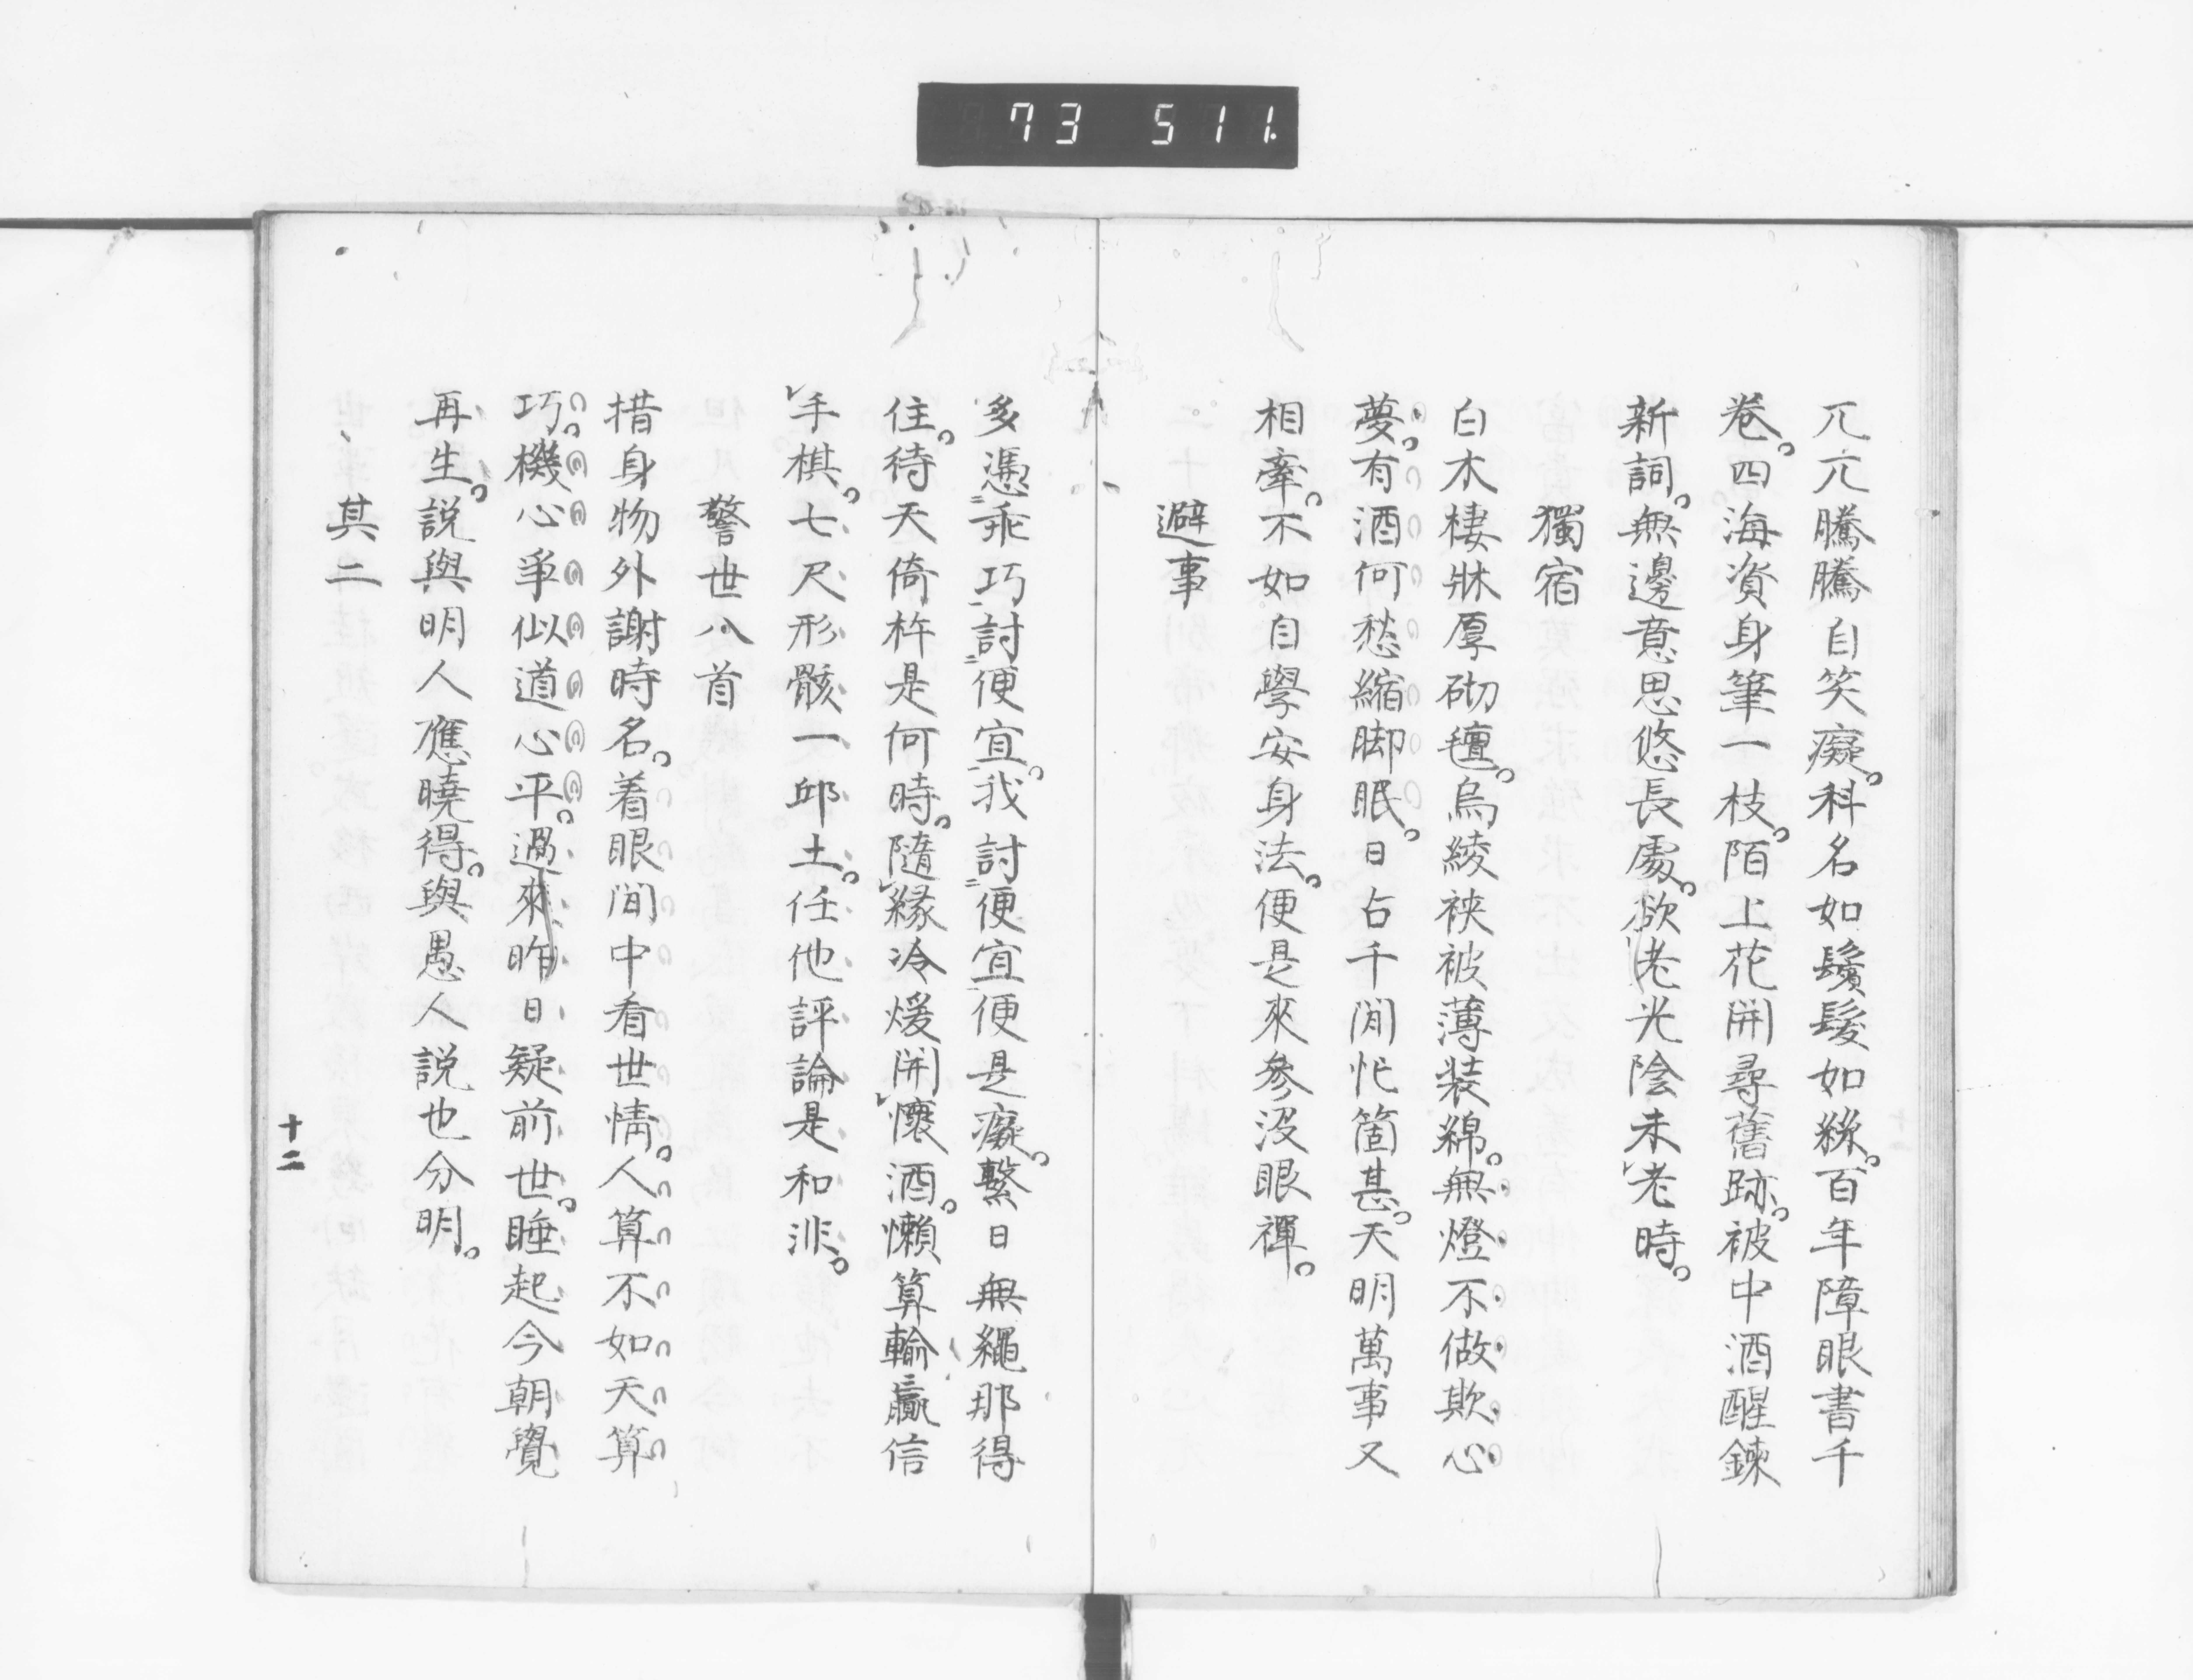 73 511.
兀兀騰騰自笑癡。科名如鬢髮如絲。百年障眼書千
卷。四海資身筆一枝。陌上花開尋舊跡。被中酒醒鍊
新詞。無邊意思悠長處。欲老光陰未老時。
獨宿
白木棲牀厚砌氊。烏綾裌被薄装綿。無燈不做欺心
夢。有酒何愁縮脚眠。日占千閒忙箇甚。天明萬事又
相牽。不如自學安身法。便是來參没眼禪。
避事
多憑乖巧討便宜。我討便宜便是癡。繫日無繩那得
住。待天倚杵是何時。隨緣冷煖開懷酒。懶算輸贏信
手棋。七尺形骸一邱土。任他評論是和非。
警世八首
措身物外謝時名。着眼閒中看世情。人算不如天算
巧。機心爭似道心平。過來昨日疑前世。睡起今朝覺
再生。説與明人應曉得。與愚人説也分明。
其二
十二